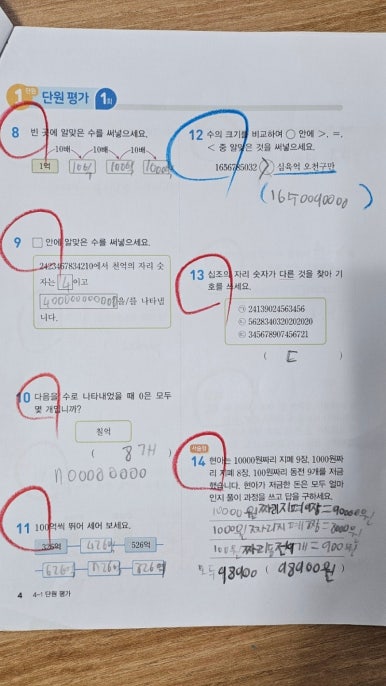 1 단원 단원 평가 1회
8 빈 곳에 알맞은 수를 써넣으세요.
10배 10배 10배
1억 10억 100억 1000억
9 □ 안에 알맞은 수를 써넣으세요.
2423467834210에서 천억의 자리 숫
자는 4이고
400000000000을/를 나타냅
니다.
10 다음을 수로 나타내었을 때 0은 모두
몇 개입니까?
칠억
( 8개 )
700000000
11 100억씩 뛰어 세어 보세요.
326억 426억 526억
626억 726억 826억
4 4-1 단원 평가
12 수의 크기를 비교하여 ○ 안에 >, =,
< 중 알맞은 것을 써넣으세요.
1656785032 > 십육억 오천구만
(1650090000)
13 십조의 자리 숫자가 다른 것을 찾아 기
호를 쓰세요.
㉠ 24139024563456
㉡ 5628340320202020
㉢ 345678907456721
( ㄷ )
서술형
14 현아는 10000원짜리 지폐 9장, 1000원짜
리 지폐 8장, 100원짜리 동전 9개를 저금
했습니다. 현아가 저금한 돈은 모두 얼마
인지 풀이 과정을 쓰고 답을 구하세요.
10000원짜리지폐9장=90000원
1000원짜리지폐8장=8000원
100원짜리동전9개=900원
모두98900 ( 98900원 )